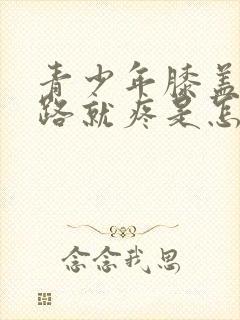 青少年膝盖
路就疼是怎
念念我思